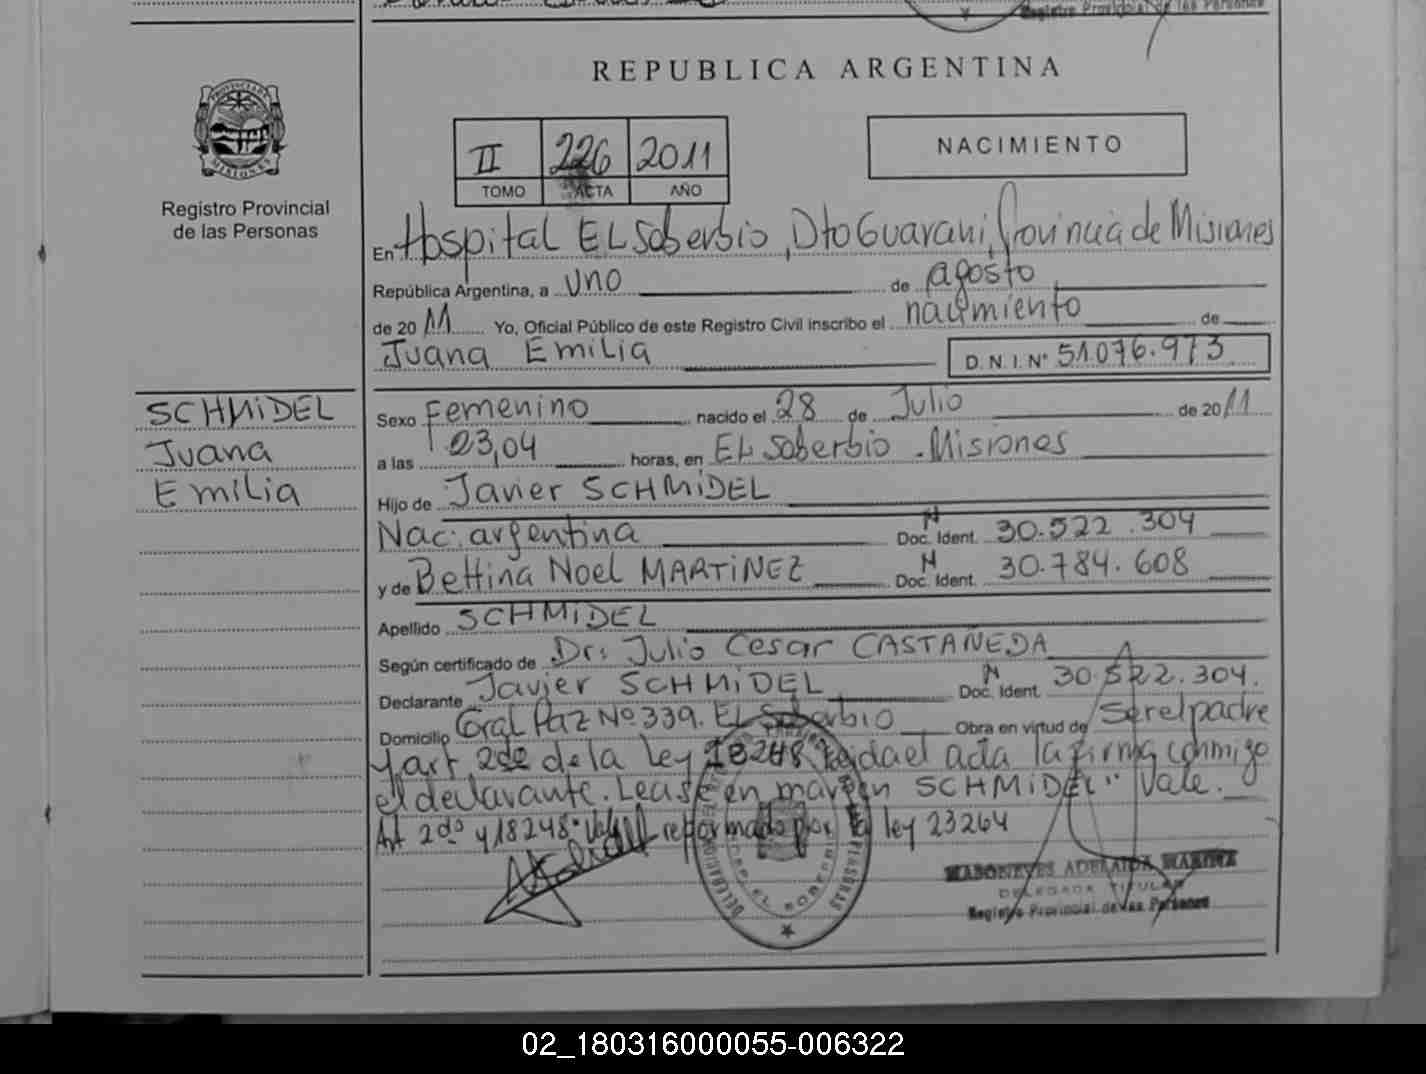 REPUBLICA ARGENTINA
PROVINCIA DE
MISIONES
Registro Provincial
de las Personas
II 226 2011
TOMO ACTA AÑO
NACIMIENTO
En Hospital EL Soberbio, Dto Guarani, Provincia de Misiones
República Argentina, a uno de agosto
de 2011 Yo, Oficial Público de este Registro Civil inscribo el nacimiento de
Juana Emilia D.N.I.Nº 51.076.973
SCHMIDEL
Juana
Emilia
Sexo Femenino nacido el 28 de Julio de 2011
a las 23,04 horas, en EL Soberbio - Misiones
Hijo de Javier SCHMIDEL
Nac. argentina Doc. Ident. 30.522.304
y de Bettina Noel MARTINEZ Doc. Ident. 30.784.608
Apellido SCHMIDEL
Según certificado de Dr: Julio Cesar CASTAÑEDA
Declarante Javier SCHMIDEL Doc. Ident. 30.522.304.
Domicilio Gral Paz Nº 339. EL Soberbio Obra en virtud de Ser el padre
y art 2do de la Ley 18248 Leida el acta la firma conmigo
el declarante. Lease en margen SCHMIDEL" Vale.
Art 2do y 18248" Vale reformado por la ley 23264
DELEGADA TITULAR
Registro Provincial de las Personas
02_180316000055-006322